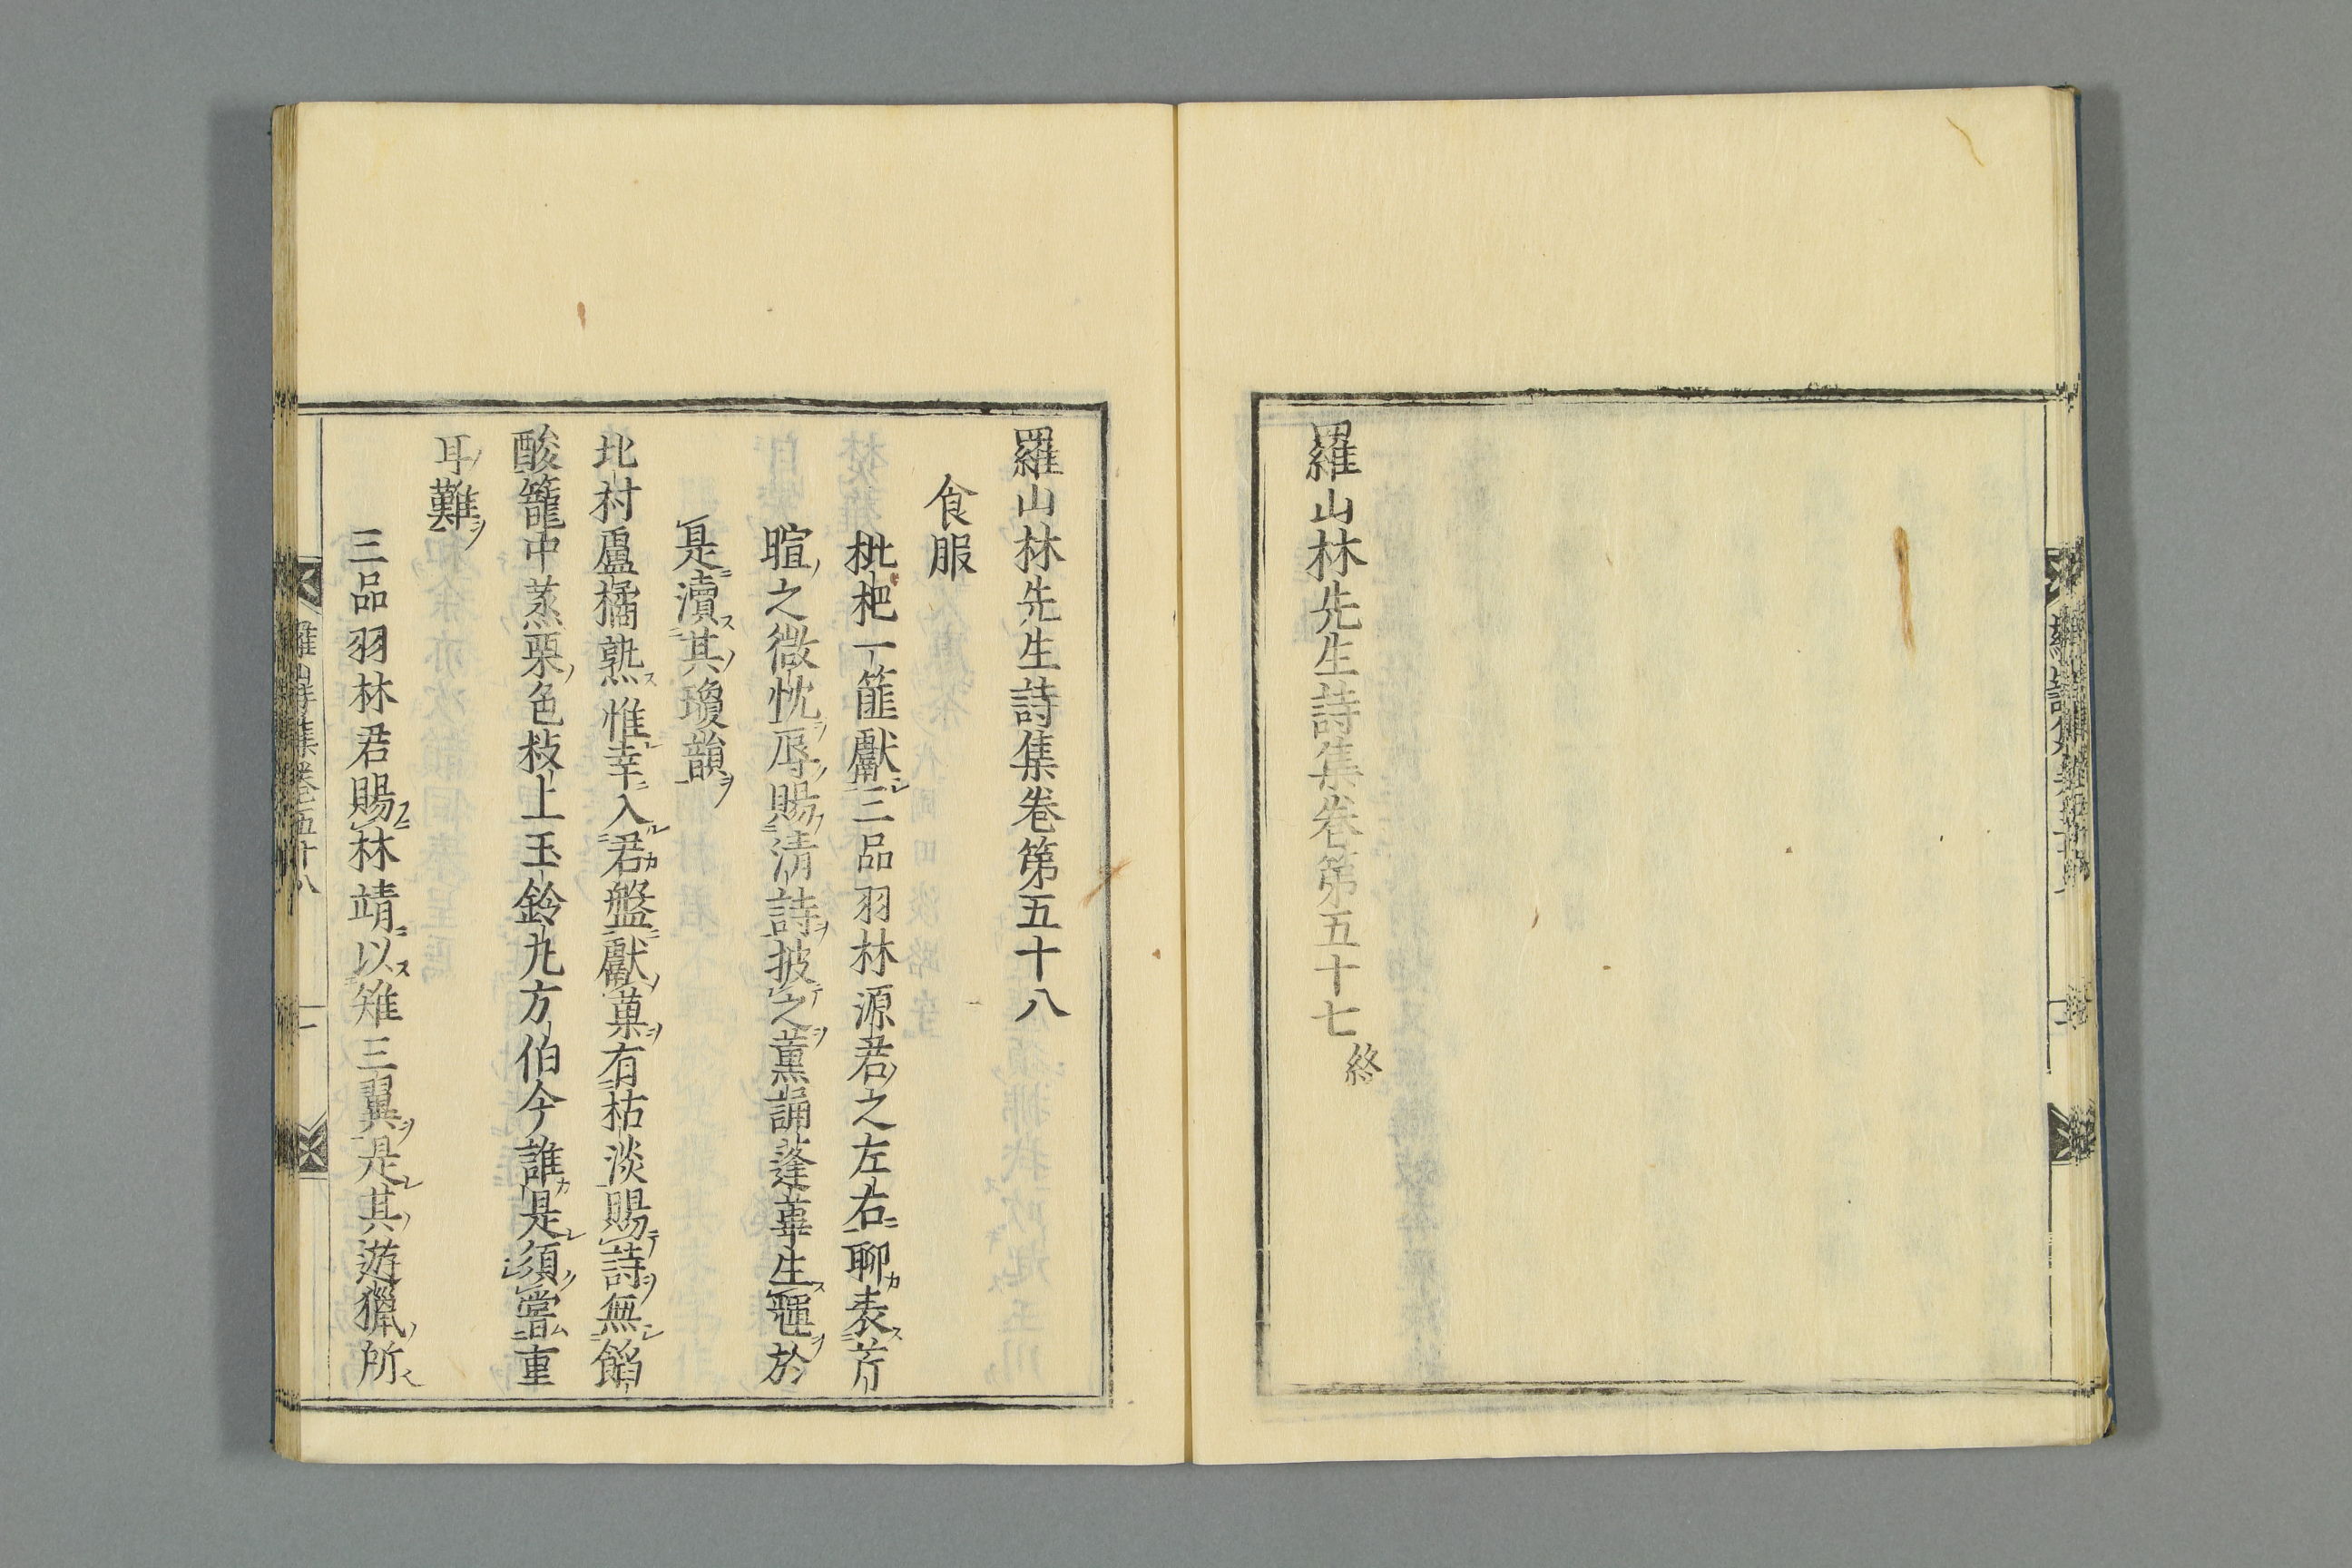 羅山林先生詩集卷第五十七終
羅山林先生詩集卷第五十八
食服
枇杷一籠獻三品羽林源君之左右聊表芹
暄之微忱辱賜清詩披之薰誦蓬蓽生
是瀆其瓊韻
北村盧橘熟惟幸入君盤獻菓有枯淡賜詩無餡
酸籠中蒸栗色枝上玉鈴丸方伯今誰是須嘗重
耳難
三品羽林君賜林靖以雉三翼是其遊獵所
羅山詩集卷五十八
一